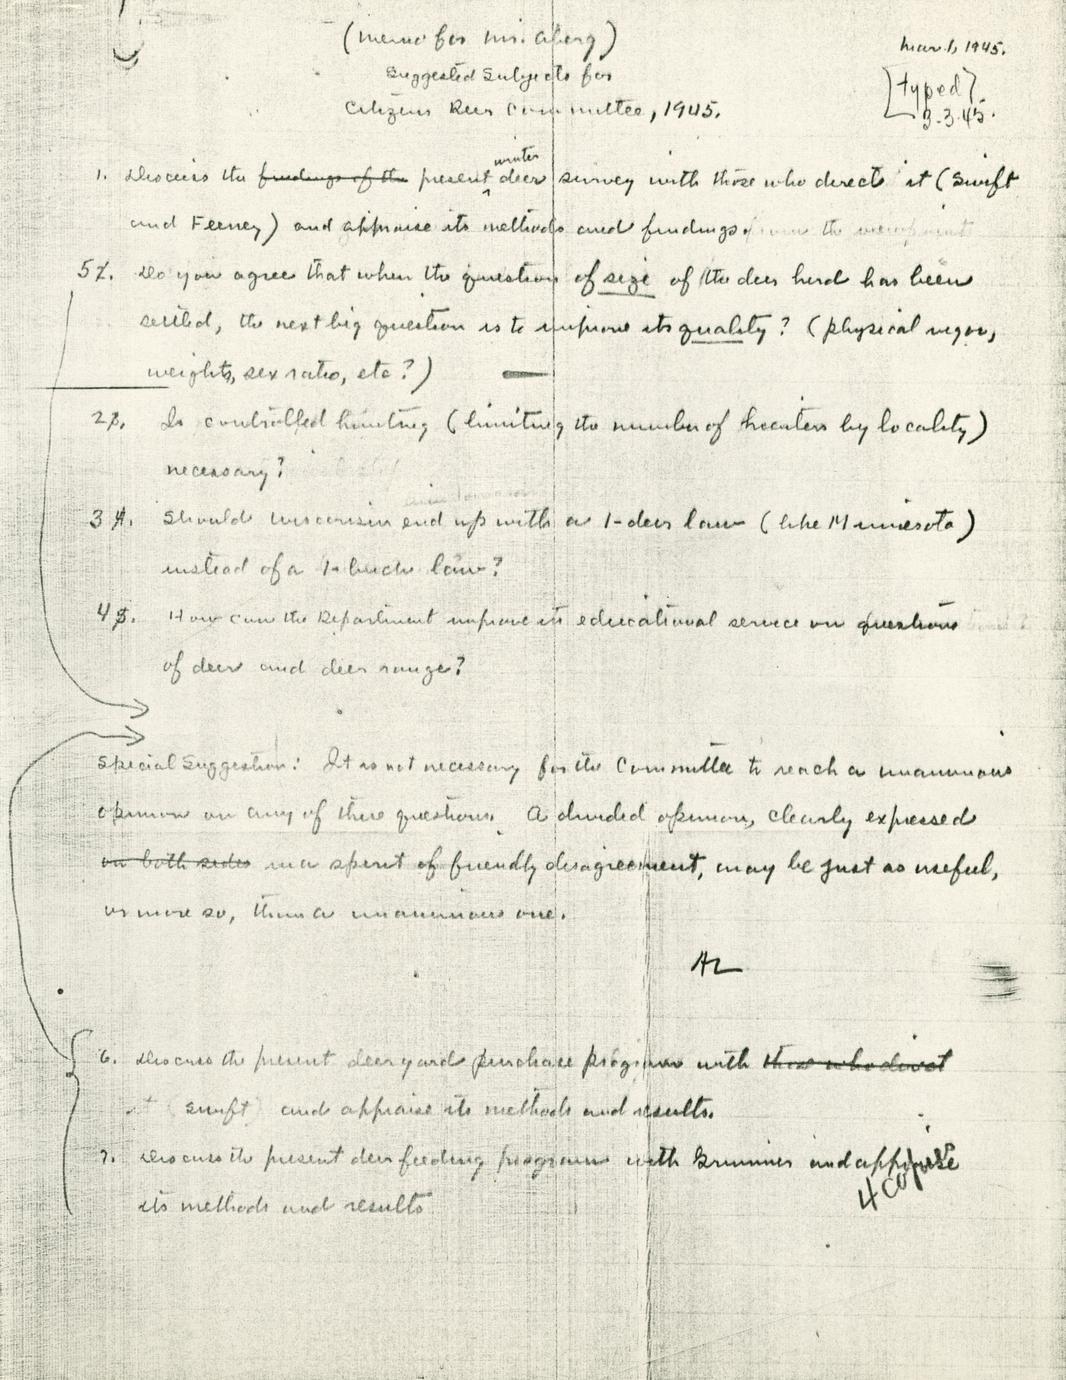 (Memo for Mr. Aberg)
Mar. 1, 1945.
Suggested Subjects for
[typed]
3-3-45.
Citizens Deer Committee, 1945.
1. Discuss the findings of the present winter deer survey with those who direct it (Swift
and Feeney) and appraise its methods and findings from the viewpoint
5 2. Do you agree that when the question of size of the deer herd has been
settled, the next big question is to improve its quality? (physical vigor,
weights, sex ratio, etc?)
2 3. Is controlled hunting (limiting the number of hunters by locality)
necessary?
3 4. Should Wisconsin end up with a 1-deer law (like Minnesota)
instead of a 1-buck law?
4 5. How can the Department improve its educational service on questions
of deer and deer range?
Special Suggestion: It is not necessary for the Committee to reach a unanimous
opinion on any of these questions. A divided opinion, clearly expressed
on both sides in a spirit of friendly disagreement, may be just as useful,
or more so, than a unanimous one.
AL
6. Discuss the present deer yard purchase program with those who direct
it (Swift) and appraise its methods and results.
7. Discuss the present deer feeding program with Grimmer and appraise
4 copies
its methods and results